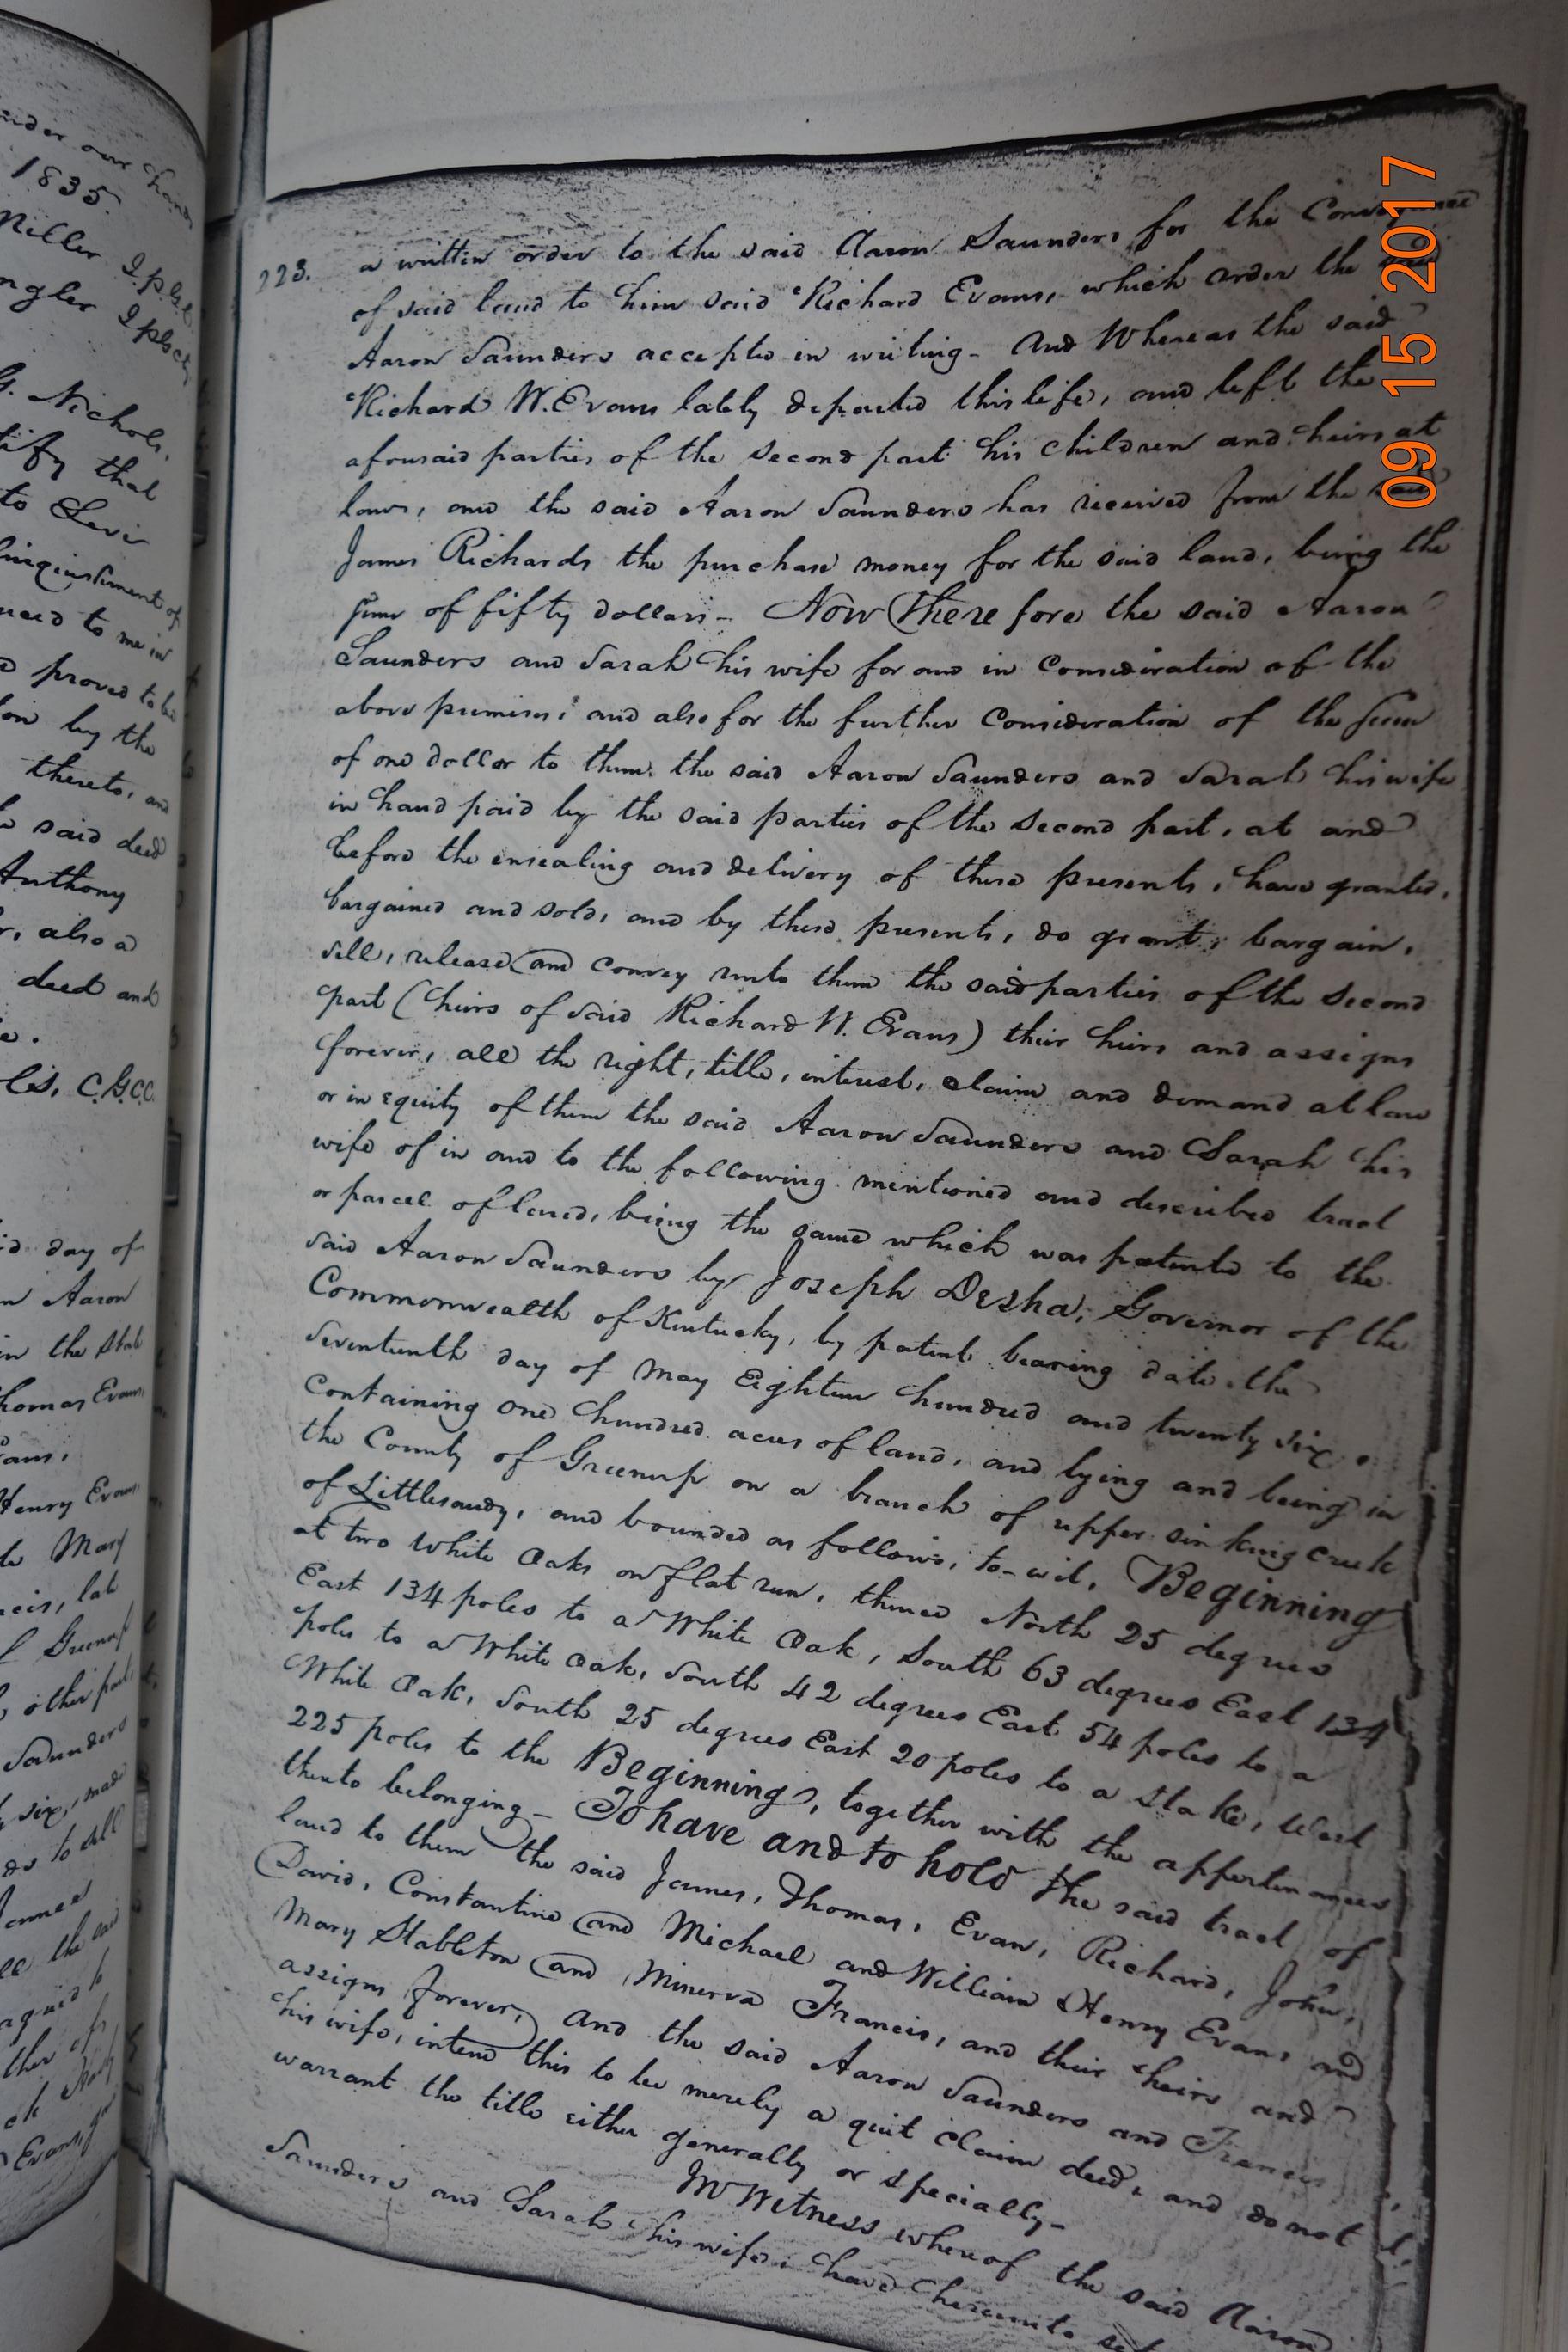 under our hands
1835.
Miller
G. Nichols,
tify that
to Levi
relinquishment of
me in
proved to be
by the
thereto, and
said deed
Anthony
also a
deed and
C.G.C.C.
day of
Aaron
in the State
Thomas Evans,
Henry Evans
Mary
late
Greenup
other part,
Saunders
six, made
to all
James
the said
223.
a written order to the said Aaron Saunders for the Conveyance
of said land to him said Richard Evans, which order the said
Aaron Saunders accepted in writing - And Whereas the said
Richard W. Evans lately departed this life, and left the
aforesaid parties of the second part his children and heirs at
law, and the said Aaron Saunders has received from the said
James Richards the purchase money for the said land, being the
sum of fifty dollars - Now Therefore the said Aaron
Saunders and Sarah his wife for and in consideration of the
above premises, and also for the further consideration of the sum
of one dollar to them the said Aaron Saunders and Sarah his wife
in hand paid by the said parties of the second part, at and
before the ensealing and delivery of these presents, have granted,
bargained and sold, and by these presents, do grant, bargain,
sell, release and convey unto them the said parties of the second
part (heirs of said Richard W. Evans) their heirs and assigns
forever, all the right, title, interest, claim and demand at law
or in equity of them the said Aaron Saunders and Sarah his
wife of in and to the following mentioned and described tract
or parcel of land, being the same which was patented to the
said Aaron Saunders by Joseph Desha, Governor of the
Commonwealth of Kentucky, by patent bearing date the
seventeenth day of May Eighteen hundred and twenty six,
containing one hundred acres of land, and lying and being in
the County of Greenup on a branch of upper sinking creek
of Littlesandy, and bounded as follows, to-wit, Beginning
at two White Oaks on flat run, thence North 25 degrees
East 134 poles to a White Oak, South 63 degrees East 134
poles to a White Oak, South 42 degrees East 54 poles to a
White Oak, South 25 degrees East 20 poles to a stake, West
225 poles to the Beginning, together with the appertinances
thereto belonging - To have and to hold the said tract of
land to them the said James, Thomas, Evan, Richard, John,
David, Constantine and Michael and William Henry Evans and
Mary Stableton and Minerva Francis, and their heirs and
assigns forever, and the said Aaron Saunders and Francis
his wife, intend this to be merely a quit claim deed, and do not
warrant the title either generally or specially -
In Witness whereof the said Aaron
Saunders and Sarah his wife have hereunto set
09 15 2017